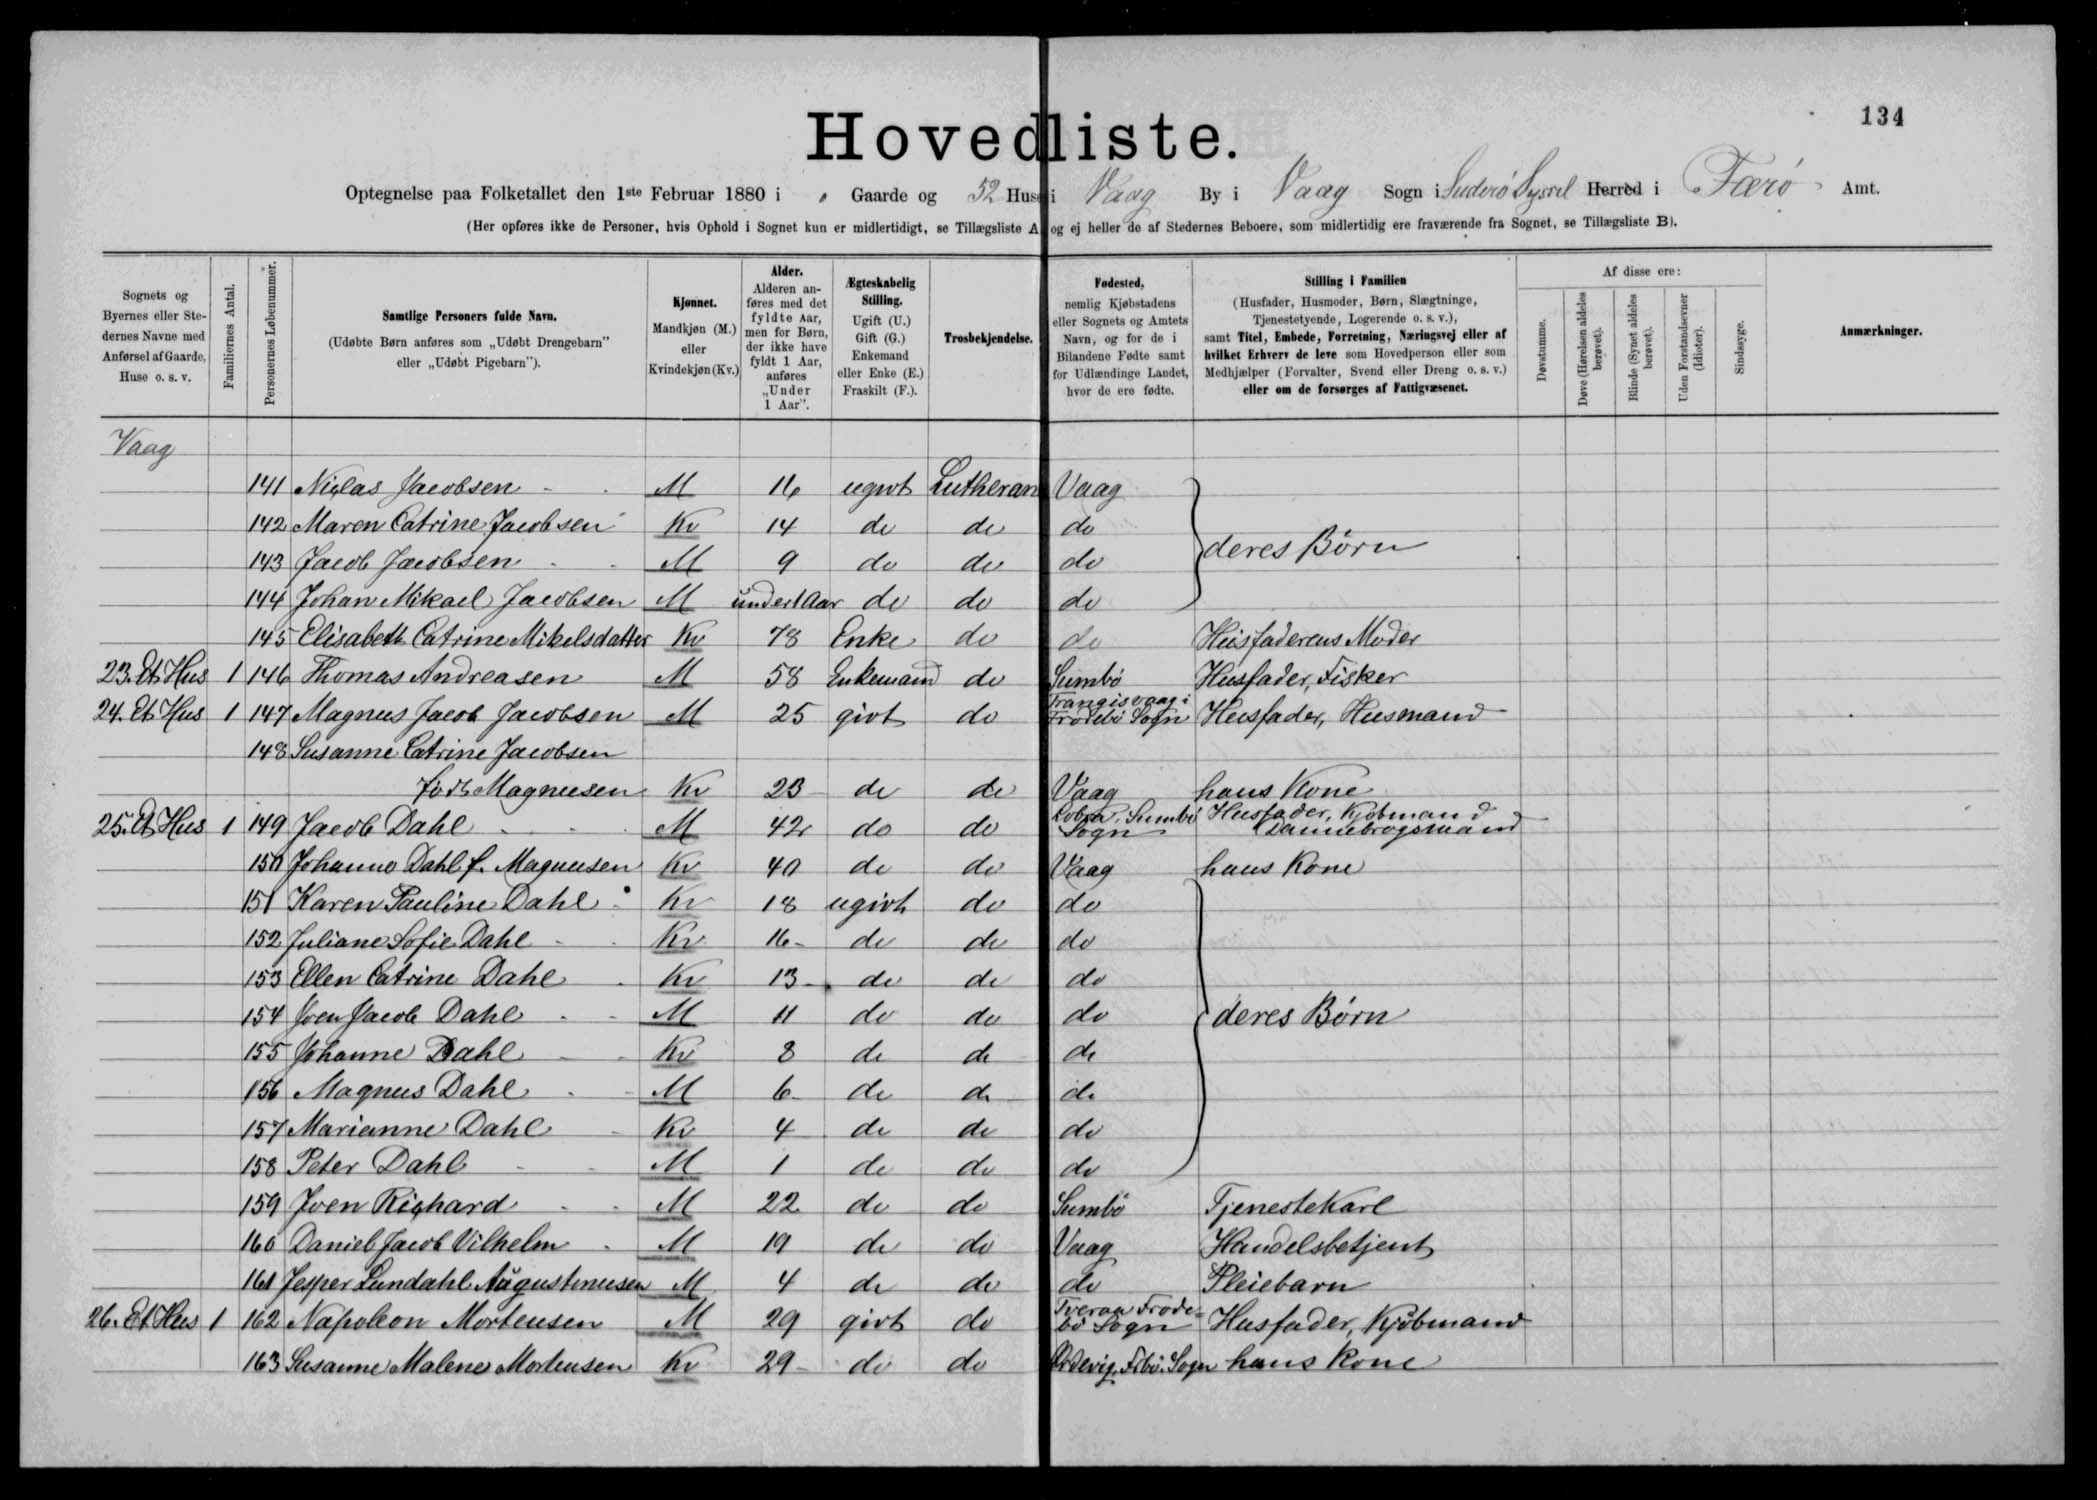 134
Hovedliste.
Optegnelse paa Folketallet den 1ste Februar 1880 i " Gaarde og 52 Huse i Vaag By i Vaag Sogn i Suderø Syssel Herred i Færø Amt.
(Her opføres ikke de Personer, hvis Ophold i Sognet kun er midlertidigt, se Tillægsliste A og ej heller de af Stedernes Beboere, som midlertidig ere fraværende fra Sognet, se Tillægsliste B).
Sognets og Byernes eller Stedernes Navne med Anførsel af Gaarde, Huse o. s. v.
Familiernes Antal.
Personernes Løbenummer.
Samtlige Personers fulde Navn.
(Udøbte Børn anføres som „Udøbt Drengebarn" eller „Udøbt Pigebarn").
Kjønnet.
Mandkjøn (M.) eller Kvindekjøn (Kv.)
Alder.
Alderen anføres med det fyldte Aar, men for Børn, der ikke have fyldt 1 Aar, anføres „Under 1 Aar".
Ægteskabelig Stilling.
Ugift (U.) Gift (G.) Enkemand eller Enke (E.) Fraskilt (F.).
Trosbekjendelse.
Fødested,
nemlig Kjøbstadens eller Sognets og Amtets Navn, og for de i Bilandene Fødte samt for Udlændinge Landet, hvor de ere fødte.
Stilling i Familien
(Husfader, Husmoder, Børn, Slægtninge, Tjenestetyende, Logerende o. s. v.),
samt Titel, Embede, Forretning, Næringsvej eller af hvilket Erhverv de leve som Hovedperson eller som Medhjælper (Forvalter, Svend eller Dreng o. s. v.) eller om de forsørges af Fattigvæsenet.
Af disse ere:
Døvstumme.
Døve (Hørelsen aldeles berøvet).
Blinde (Synet aldeles berøvet).
Uden Forstandsevner (Idioter).
Sindssyge.
Anmærkninger.
Vaag
141 Niclas Jacobsen M 16 ugivt Lutheran Vaag
142 Maren Catrine Jacobsen Kv 14 do do do
143 Jacob Jacobsen M 9 do do do deres Børn
144 Johan Mikael Jacobsen M under 1 Aar do do do
145 Elisabeth Catrine Mikelsdatter Kv 78 Enke do do Husfaderens Moder
23. Et Hus 1 146 Thomas Andreasen M 58 Enkemand do Sumbø Husfader, Fisker
24. Et Hus 1 147 Magnus Jacob Jacobsen M 25 givt do Trangisvaag i Frodebø Sogn Husfader, Husmand
148 Susanne Catrine Jacobsen
født Magnusen Kv 23 do do Vaag hans Kone
25. Et Hus 1 149 Jacob Dahl M 42 do do Lobra, Sumbø Sogn Husfader, Kjøbmand Dannebrogsmand
150 Johanne Dahl f. Magnusen Kv 40 do do Vaag hans Kone
151 Karen Pauline Dahl Kv 18 ugivt do do
152 Juliane Sofie Dahl Kv 16 do do do
153 Ellen Catrine Dahl Kv 13 do do do
154 Joen Jacob Dahl M 11 do do do deres Børn
155 Johanne Dahl Kv 8 do do do
156 Magnus Dahl M 6 do do do
157 Marianne Dahl Kv 4 do do do
158 Peter Dahl M 1 do do do
159 Joen Righard M 22 do do Sumbø Tjenestekarl
160 Daniel Jacob Vilhelm M 19 do do Vaag Handelsbetjent
161 Jesper Lundahl Augustinusen M 4 do do do Pleiebarn
26. Et Hus 1 162 Napoleon Mortensen M 29 givt do Tveraa Frodebø Sogn Husfader, Kjøbmand
163 Susanne Malene Mortensen Kv 29 do do Ordevig, Frbø. Sogn hans Kone